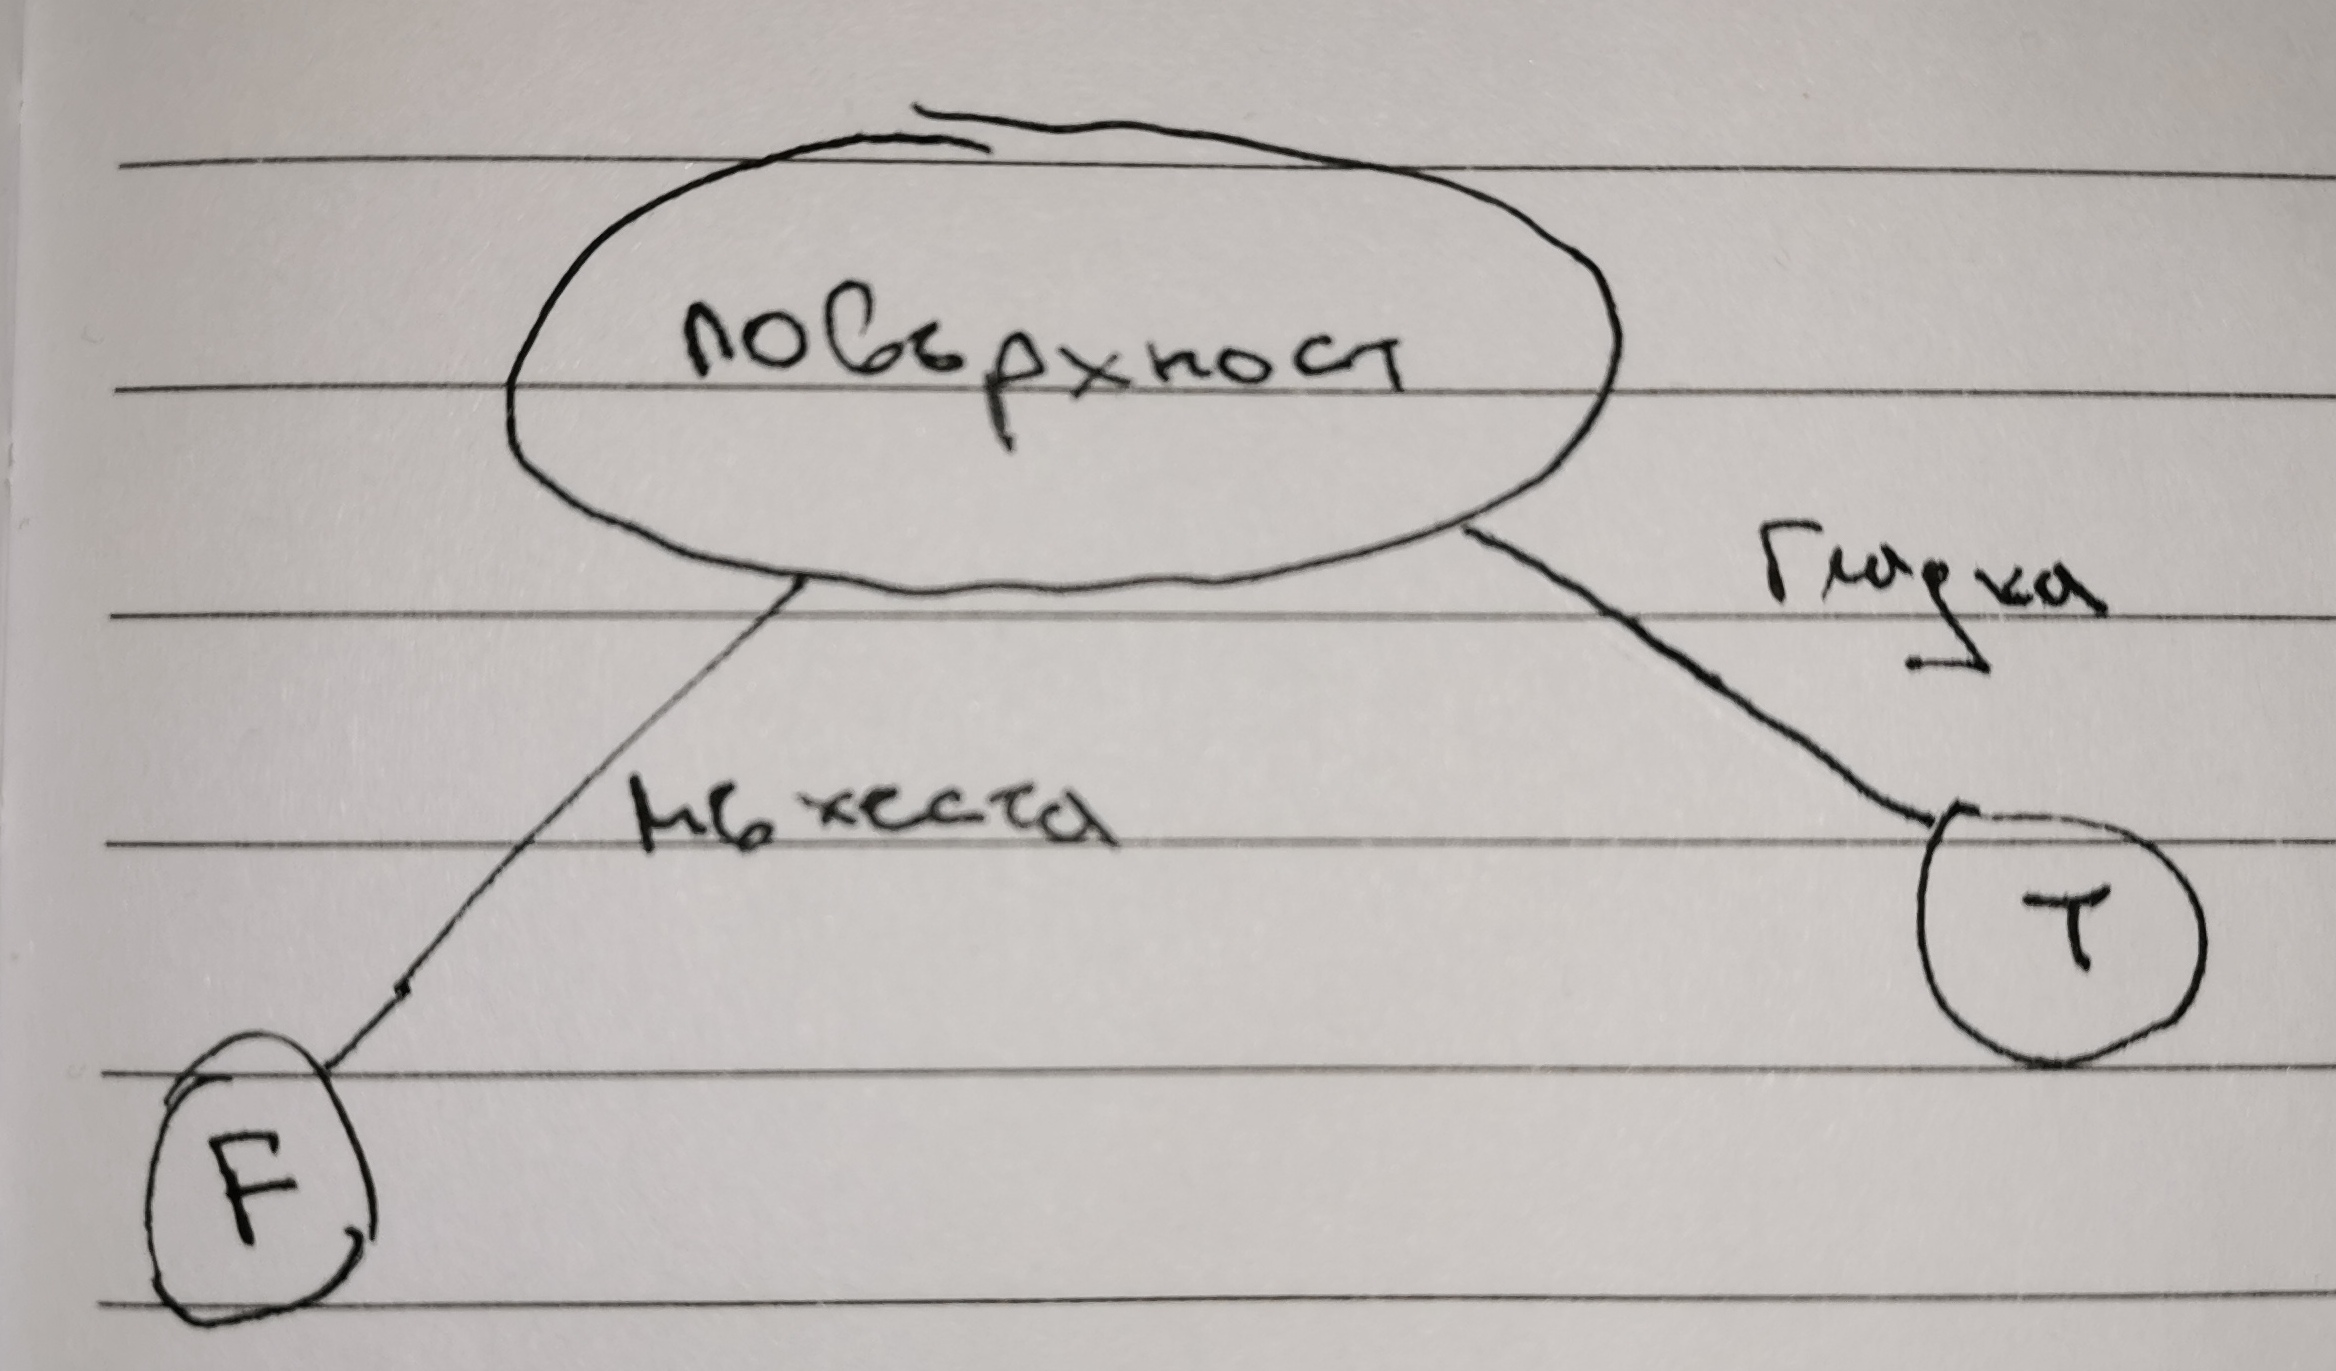 повърхност
Гладка
мъхеста
T
F